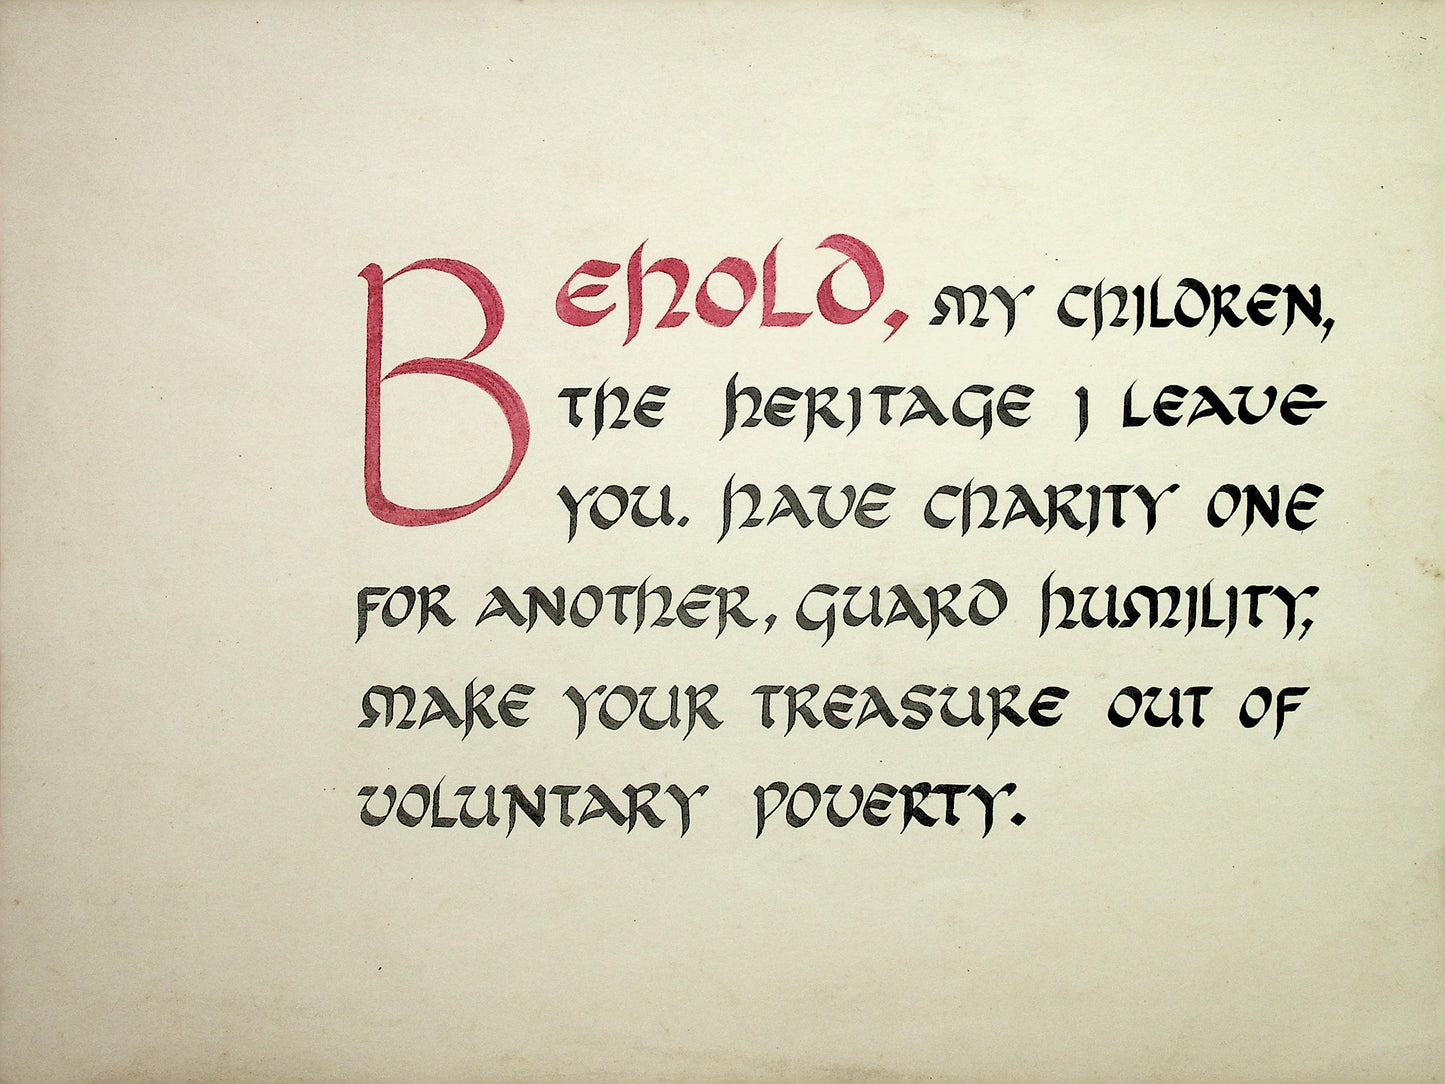 Behold, my children,
the heritage I leave
you. Have charity one
for another, guard humility,
make your treasure out of
voluntary poverty.